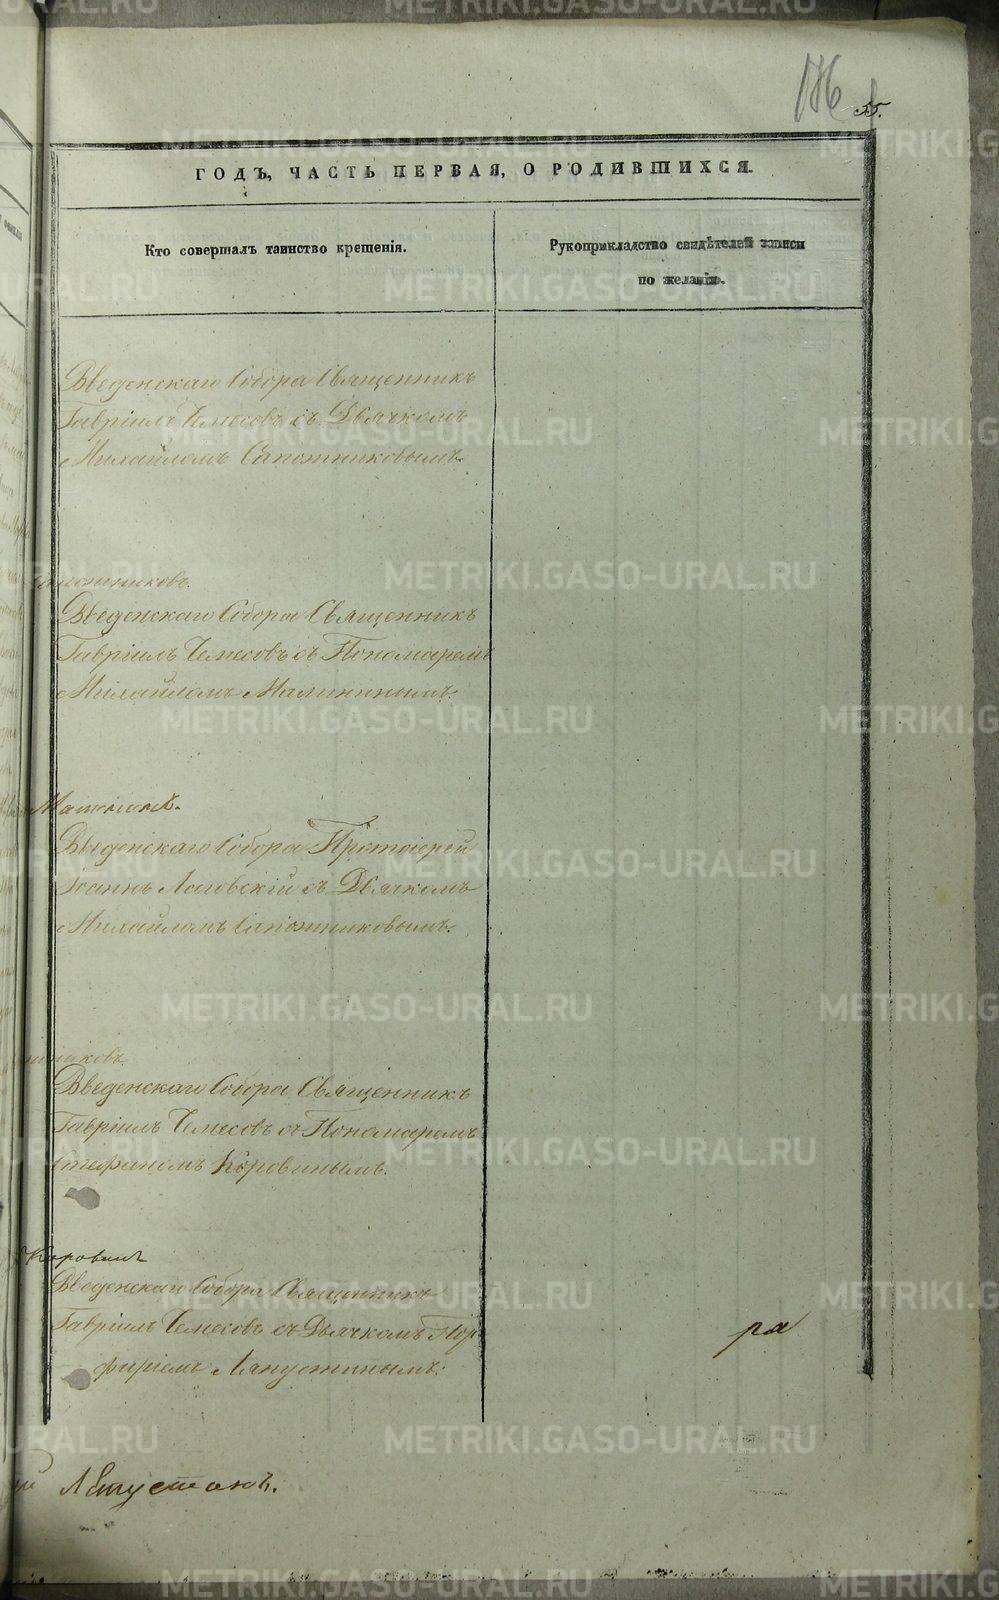 176
55.
ГОДЪ, ЧАСТЬ ПЕРВАЯ, О РОДИВШИХСЯ.
Кто совершалъ таинство крещенія.
Рукоприкладство свидѣтелей записи
по желанію.
Введенскаго Собора Священникъ
Гавріилъ Чемесовъ съ Дьячкомъ
Михайломъ Сапожниковымъ.
Сапожниковъ.
Введенскаго Собора Священникъ
Гавріилъ Чемесовъ съ Пономаремъ
Михайломъ Малининымъ.
Введенскаго Собора Протоіерей
Іоаннъ Лаговскій съ Дьячкомъ
Михайломъ Сапожниковымъ.
Введенскаго Собора Священникъ
Гавріилъ Чемесовъ съ Пономаремъ
Стефаномъ Коровинымъ.
Коровинъ
Введенскаго Собора Священникъ
Гавріилъ Чемесовъ съ Дьячкомъ Пор-
фиріемъ Лапустинымъ.
ра
METRIKI.GASO-URAL.RU